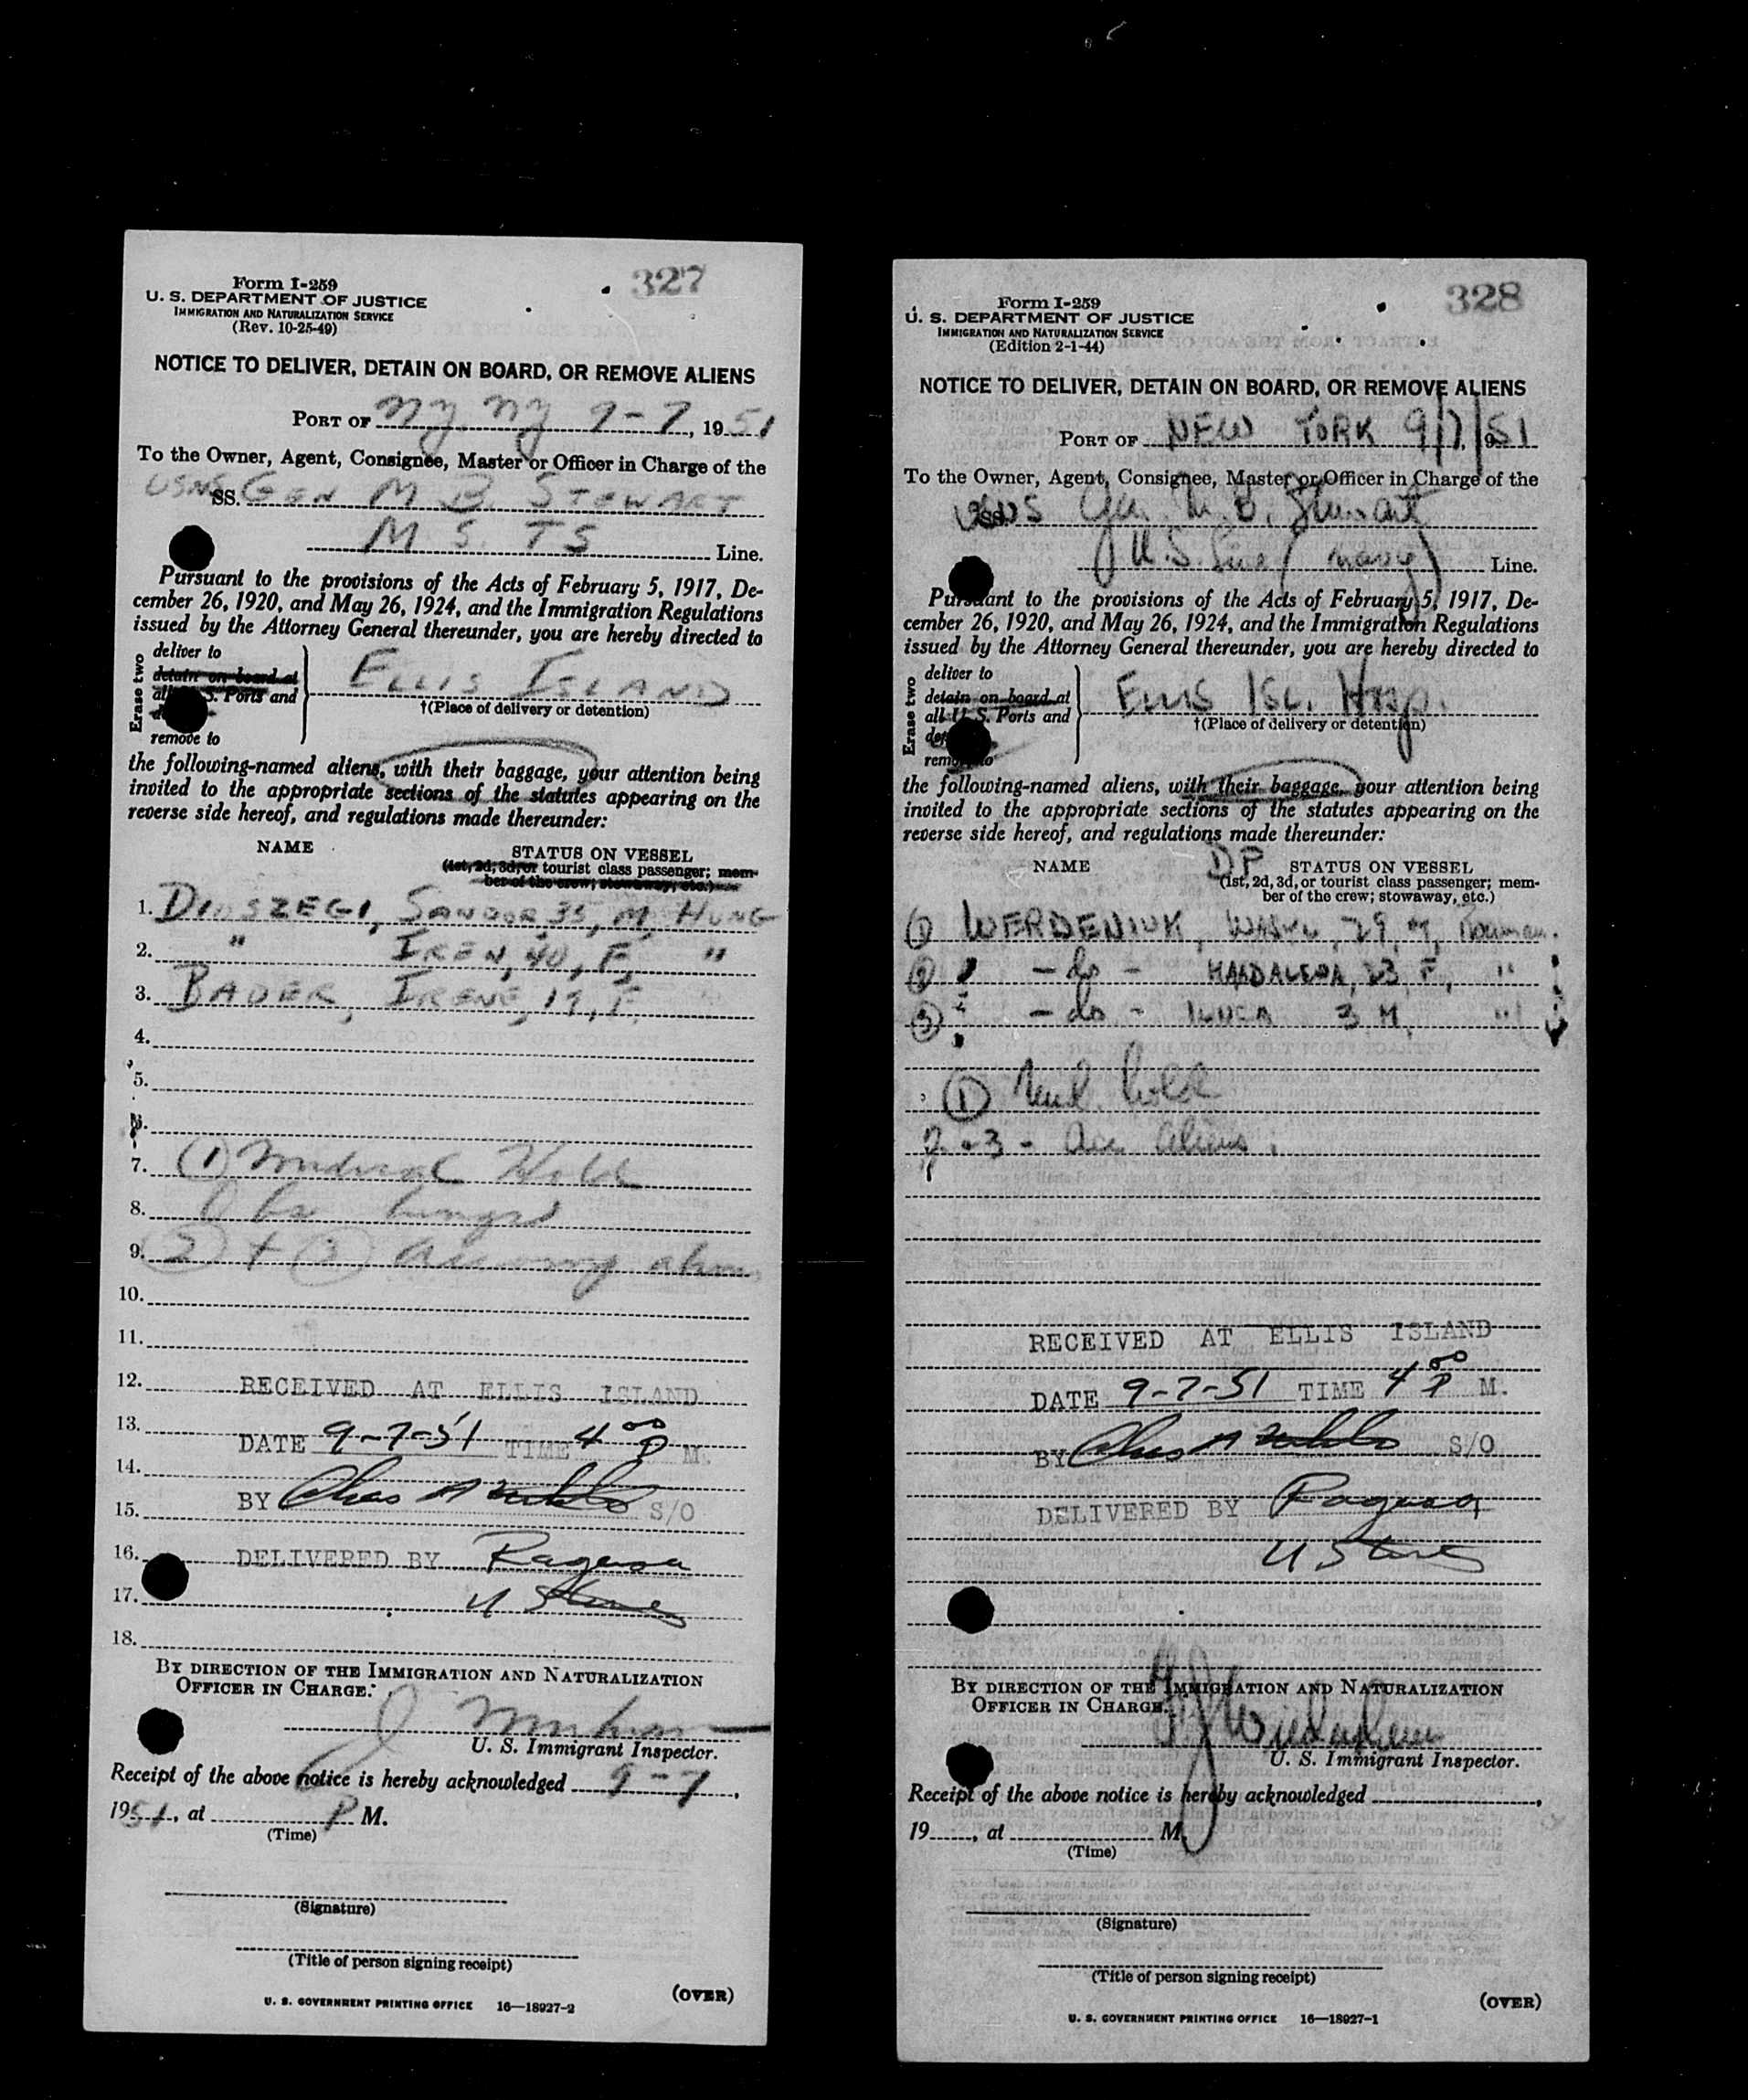 327
Form I-259
U. S. DEPARTMENT OF JUSTICE
IMMIGRATION AND NATURALIZATION SERVICE
(Rev. 10-25-49)
NOTICE TO DELIVER, DETAIN ON BOARD, OR REMOVE ALIENS
PORT OF NY. NY 9-7, 1951
To the Owner, Agent, Consignee, Master or Officer in Charge of the
USNS SS. GEN M. B. STEWART
M S TS Line.
Pursuant to the provisions of the Acts of February 5, 1917, De-
cember 26, 1920, and May 26, 1924, and the Immigration Regulations
issued by the Attorney General thereunder, you are hereby directed to
Erase two
deliver to
detain on board at
all S. Ports and
remove to
ELLIS ISLAND
†(Place of delivery or detention)
the following-named aliens, with their baggage, your attention being
invited to the appropriate sections of the statutes appearing on the
reverse side hereof, and regulations made thereunder:
NAME STATUS ON VESSEL
(1st, 2d, 3d, or tourist class passenger; mem-
ber of the crew; stowaway, etc.)
1. DIOSZEGI, SANDOR, 35, M, HUNG
2. " IREN, 40, F, "
3. BAUER, IRENE, 19, F.
4.
5.
6.
7. (1) Medical Hold
8.
9. (2) + (3) accompanying aliens
10.
11.
12. RECEIVED AT ELLIS ISLAND
13. DATE 9-7-51 TIME 4 00 P M.
14.
15. BY Chas A S/O
16. DELIVERED BY Ragusa
17. U S Lines
18.
BY DIRECTION OF THE IMMIGRATION AND NATURALIZATION
OFFICER IN CHARGE.
U. S. Immigrant Inspector.
Receipt of the above notice is hereby acknowledged 9-7,
1951, at P M.
(Time)
(Signature)
(Title of person signing receipt)
(OVER)
U. S. GOVERNMENT PRINTING OFFICE 16—18927-2
328
Form I-259
U. S. DEPARTMENT OF JUSTICE
IMMIGRATION AND NATURALIZATION SERVICE
(Edition 2-1-44)
NOTICE TO DELIVER, DETAIN ON BOARD, OR REMOVE ALIENS
PORT OF NEW YORK 9/7/51
To the Owner, Agent, Consignee, Master or Officer in Charge of the
USNS Gen. M. B. Stewart
U.S. Line (Navy) Line.
Pursuant to the provisions of the Acts of February 5, 1917, De-
cember 26, 1920, and May 26, 1924, and the Immigration Regulations
issued by the Attorney General thereunder, you are hereby directed to
Erase two
deliver to
detain on board at
all U. S. Ports and
remove to
ELLIS ISL. Hosp.
†(Place of delivery or detention)
the following-named aliens, with their baggage, your attention being
invited to the appropriate sections of the statutes appearing on the
reverse side hereof, and regulations made thereunder:
NAME DP STATUS ON VESSEL
(1st, 2d, 3d, or tourist class passenger; mem-
ber of the crew; stowaway, etc.)
(1) WERDENIUK, WASYL, 29, M, Rouman.
(2) - do - MAGDALENA, 23, F, "
(3) - do - 3 M, "
(1) Med. hold
2-3 - Acc. aliens.
RECEIVED AT ELLIS ISLAND
DATE 9-7-51 TIME 4 00 P M.
BY Chas A S/O
DELIVERED BY Ragusa
U S Lines
BY DIRECTION OF THE IMMIGRATION AND NATURALIZATION
OFFICER IN CHARGE.
U. S. Immigrant Inspector.
Receipt of the above notice is hereby acknowledged
19 , at M.
(Time)
(Signature)
(Title of person signing receipt)
(OVER)
U. S. GOVERNMENT PRINTING OFFICE 16—18927-1